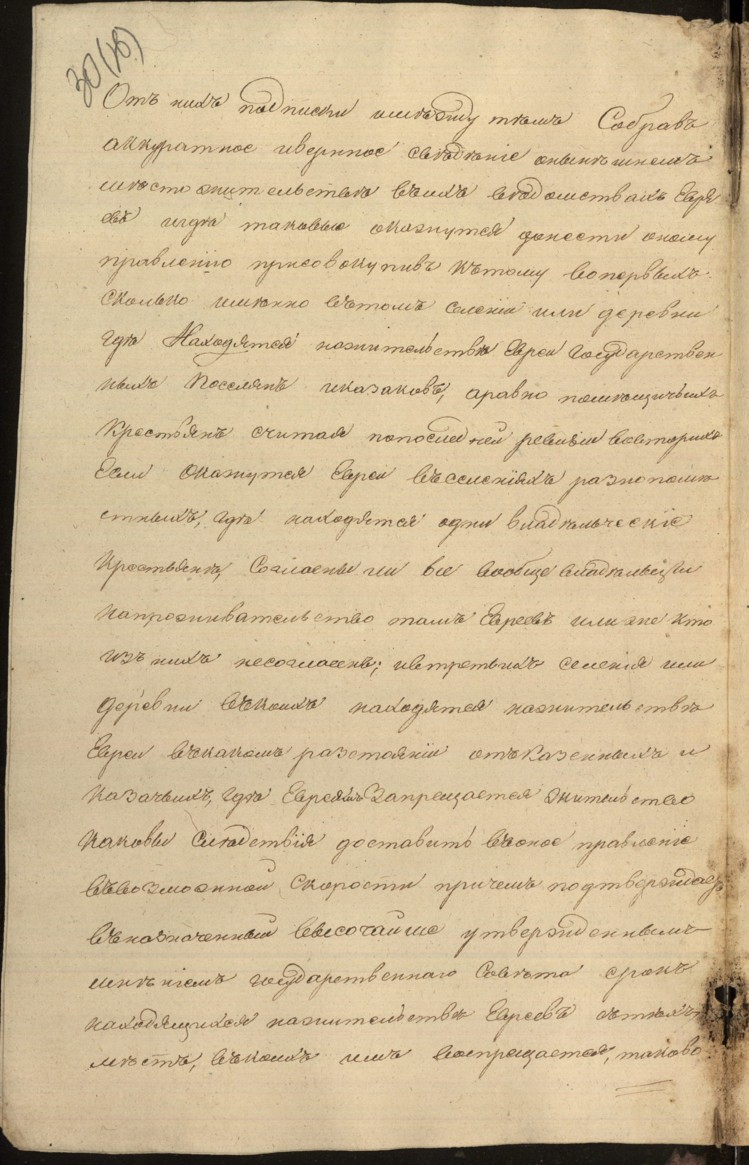 30 (об)
Отъ нихъ подписки имежду тѣмъ Собравъ
аккуратное ивернное свѣдѣніе онынѣшнемъ
мѣсто жительствѣ въихъ вѣдомствахъ Евре
евъ игдѣ таковые окажутся донести оному
правленію присовокупивъ кътому вопервыхъ
сколько имѣнно вътомъ селеніи или деревни
гдѣ Находятся нажительствѣ Евреи Государствен
ныхъ Поселянъ иказаковъ, аравно помещичьихъ
Крестьянъ считая попоследней ревизіи вовторихъ
Если Окажутся Евреи въселеніяхъ разнопомѣ
стныхъ, гдѣ находятся одни владѣльческіе
Крестьянѣ, Согласны ли все вообще владѣльцы
напроживательство тамъ Евреевъ или же кто
изъ нихъ несогласенъ; ивтретьихъ селенія или
деревни въкоихъ находятся нажительствѣ
Евреи въкакомъ разстояніи отъказенныхъ и
казачьихъ, гдѣ Евреямъ Запрещается жительство
каковы Слѣдствія доставить въоное правленіе
въвозможной Скорости причемъ подтверждаетъ
въназначенный Высочайше утвержденнымъ
мнѣніемъ Государственнаго Совѣта срокъ
находящихся нажительствѣ Евреевъ вътѣхъ
мѣстъ, въкоихъ имъ воспрещается, таково